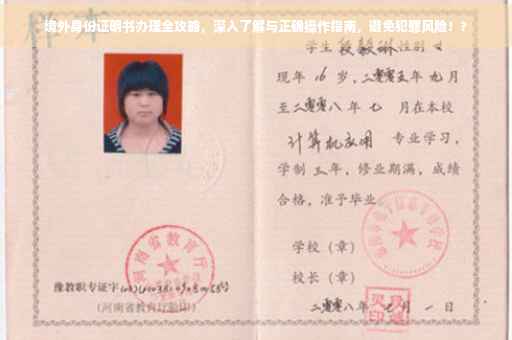 境外身份证明书办理全攻略，深入了解与正确操作指南，避免犯罪风险！?
样本
学生段毅琳性别女
现年16岁，二零零五年九月
至二零零八年七月在本校
计算机应用 专业学习，
学制三年，修业期满，成绩
合格，准予毕业
学校（章）
校长（章）
二零零八年七月一日
河南省教育厅
豫教职专证字
(河南省教育厅验印)